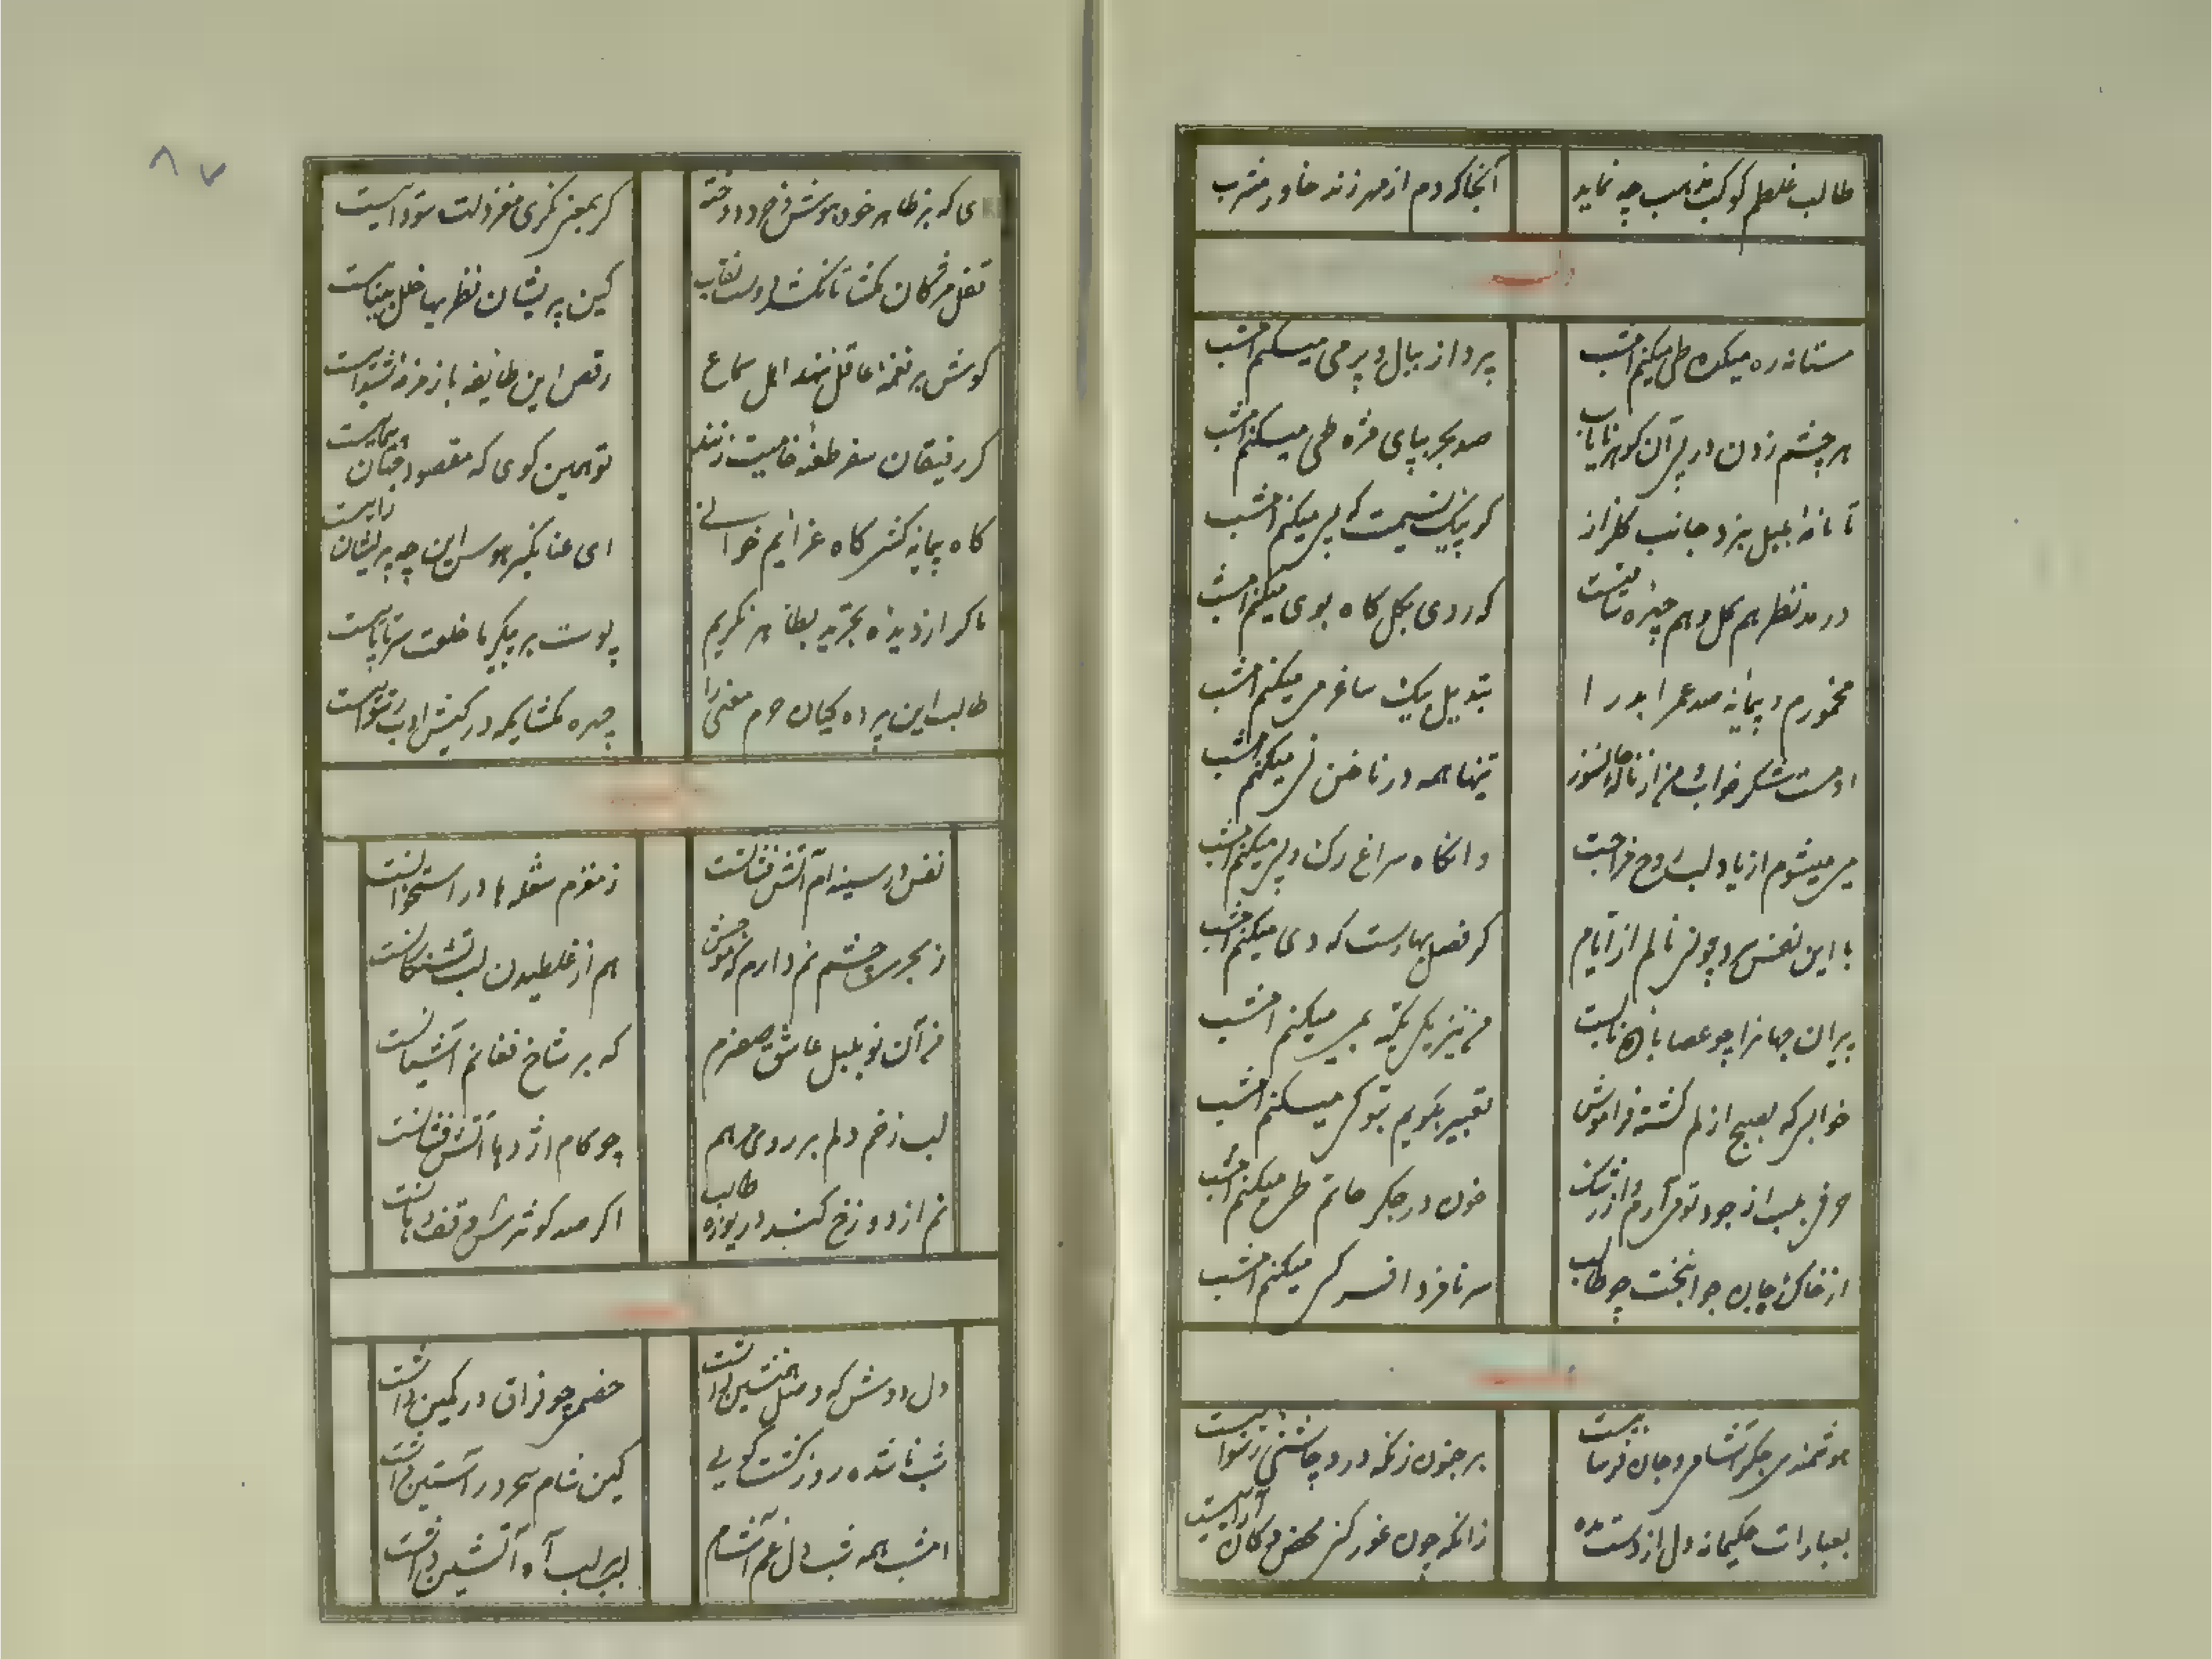 طالب غلطم کوکب مذهب چه نماید
آنجا که دم از مهر زند خاور مشرب
وله
مستانه ره میکده طی میکنم امشب
پرواز ببال و پر می میکنم امشب
هر چشم زدن در پی آن گوهر نایاب
صد بحر بپای مژه طی میکنم امشب
تا نامه بلبل ببرد جانب گلزار
کو پیک نسیمیست که پی میکنم امشب
در مد نظر هم گل و هم چهره
که روی بگل گاه بوی میکنم امشب
مخمورم و پیمانه صد عمر ابد را
تبدیل بیک ساغر می میکنم امشب
او مست شکر خواب و من از ناله
تنها همه در ناخن نی میکنم امشب
می میشوم از یاد لب
وانگاه سراغ رگ و پی میکنم امشب
با این نفس سرد چو نی نالم از ایام
کو فصل بهارست که دی میکنم امشب
پیران جهانرا چو عصا
من نیز یکی تکیه بمی میکنم امشب
خوابی که بصبح ازلم گشته فراموش
تعبیر بگویم بتو کی میکنم امشب
حرفی بلب از جود تو می آرم و از رشک
خون در جگر حاتم طی میکنم امشب
از خاک چو طالب
سر نامزد افسر کی میکنم امشب
بر جنون زن که درو چاشنی رسواییست
بعبارات حکیمانه دل از دست مده
زانکه چون غور کنی محض
ی که بر ظاهر خود هوش و خرد دوخته
گر بمعنی نگری مغز دلت سوداییست
قفل مژگان مگشا تا نکشد دوست نقاب
کین پریشان نظریها خلل بیناییست
گوش بر نغمه عاقل ننهند اهل سماع
رقص این طایفه با زمزمه
گر رفیقان سفر طعنه خامیت زنند
تو همین گوی که مقصود
گاه پیمانه کشی گاه عزایم خوانی
ای عنان هوس این چه پریشان راییست
ما گر از دیده تجرید بظاهر نگریم
پوست بر پیکر ما خلعت سرتاپاییست
طالب این پرده گیان حرم معنی را
چهره مگشا که در کیش ادب رسواییست
نفس در سینه ام آتش فشانست
ز مغزم شعله ها در استخوانست
ز بحری چشم نم دارم که موجش
هم از غلطیدن لب تشنگانست
من آن نو بلبل عاشق صفیرم
که بر شاخ فغانم آشیانست
لب زخم دلم بر روی مرهم
چو کام اژدها آتش فشانست
نم از دوزخ کند دریوزه طالب
اگر صد کوثرش وقف دهانست
دل دوش که وصل همنشین داشت
خصمی چو فراق در کمین داشت
شب نا شده روز گشت گویی
کین شام سحر در آستین داشت
امشب همه شب دل غم آشام
لب بر لب آه آتشین داشت